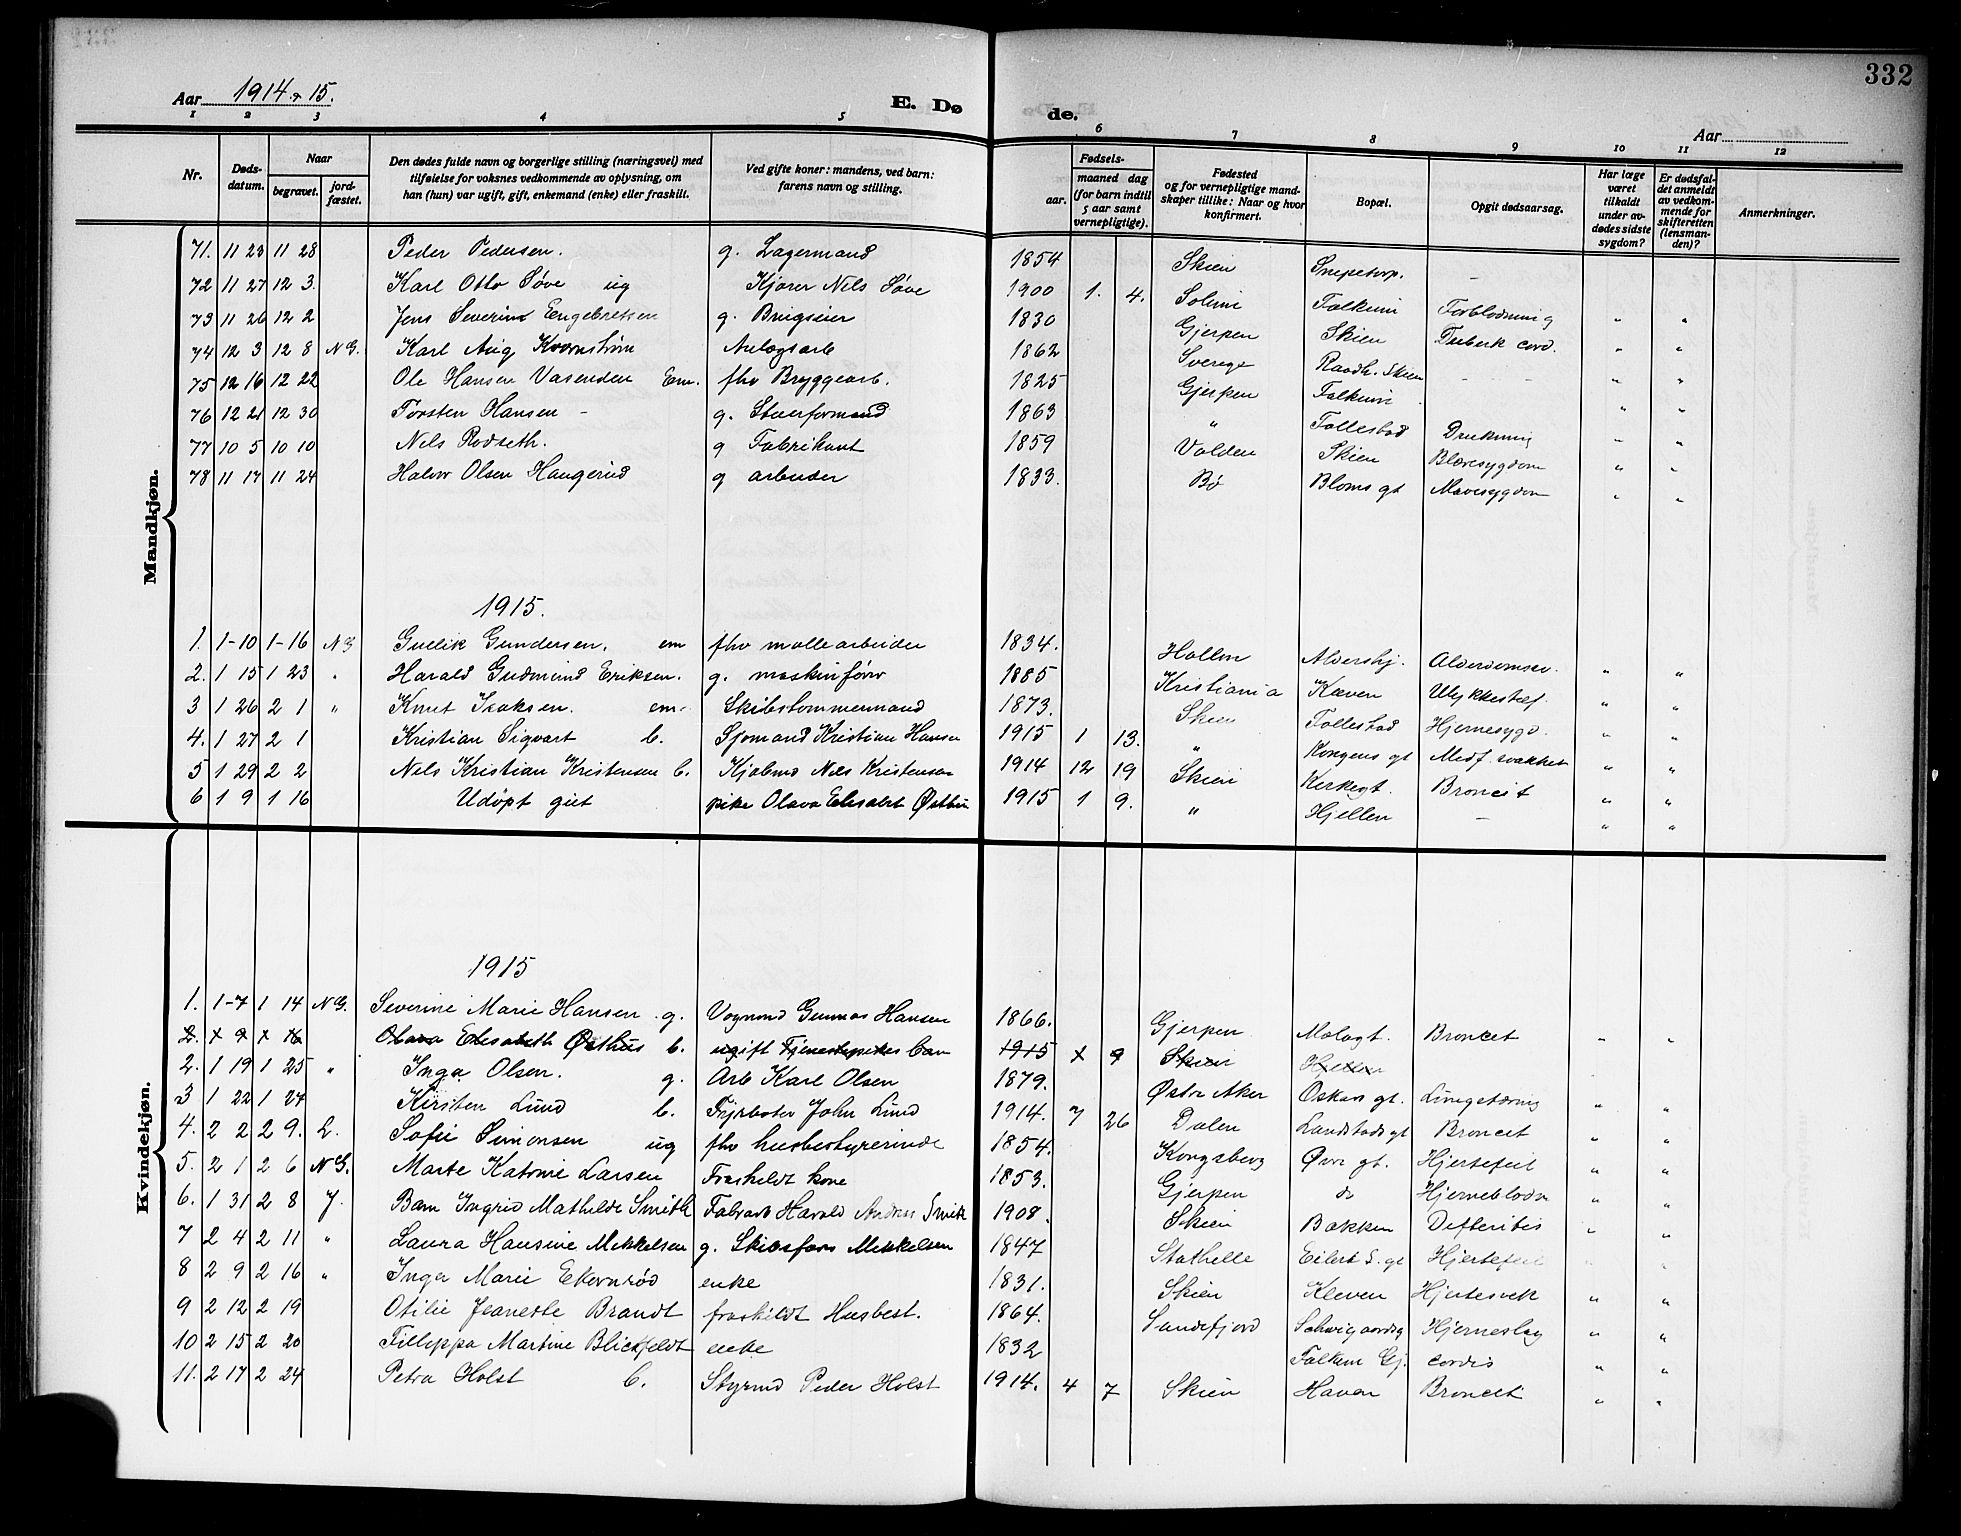 332
Aar 1914 & 15.
E. Døde.
Aar
1 2 3 4 5 6 7 8 9 10 11 12
Nr.
Døds-datum.
Naar
begravet.
jord-fæstet.
Den dødes fulde navn og borgerlige stilling (næringsvei) med
tilføielse for voksnes vedkommende av oplysning, om
han (hun) var ugift, gift, enkemand (enke) eller fraskilt.
Ved gifte koner: mandens, ved barn:
farens navn og stilling.
Fødsels-
aar. maaned dag
(for barn indtil
5 aar samt
vernepligtige).
Fødested
og for vernepligtige mand-
skaper tillike: Naar og hvor
konfirmert.
Bopæl.
Opgit dødsaarsag.
Har læge
været
tilkaldt
under av-
dødes sidste
sygdom?
Er dødsfal-
det anmeldt
av vedkom-
mende for
skifteretten
(lensman-
den)?
Anmerkninger.
Mandkjøn.
71. 11 23 11 28 Peder Pedersen. g. Lagermand 1854 Skien Snipetorp. -
72 11 27 12 3. Karl Otto Søve ug Kjører Nils Søve 1900 1. 4. Solum Falkum Forblødning " "
73 11 26 12 2 Jens Severin Engebretsen g. Brugseier 1830 Gjerpen Skien Tuberk cord. " "
74 12 3 12 8 NG. Karl Aug Kvarnstrøm Anlægsarb 1862 Sverige Raadh. Skien - - " "
75 12 16 12 22 Ole Hansen Vasenden Em. fhv Bryggearb. 1825 Gjerpen Falkum " "
76 12 21 12 30 Torsten Hansen - g. Stuerformand 1863 " Follestad Drukning " "
77 10 5 10 10 Nils Rodseth. g Fabrikant 1859 Volden Skien Blæresygdom " "
78 11 17 11 24 Halvor Olsen Haugerud g arbeider 1833. Bø Bloms gt Mavesygdom " "
1915.
1. 1-10 1-16 NG Gullik Gundersen. em fhv møllearbeider 1834. Hollen Aldershj. Alderdomssv. " "
2. 1 15 1 23 " Harald Gudmund Eriksen. g. maskinfører 1885 Kristiania Kleven Ulykkestilf. " "
3 1 26 2 1 " Knut Isaksen. em. Skibstømmermand 1873. Skien Follestad Hjernesygd. " "
4. 1 27 2 1 Kristian Sigvart b. Sjømand Kristian Hansen 1915 1 13. " Kongens gt Medf. svakhet " "
5 1 29 2 2 Nils Kristian Kristensen b. Kjøbmd Nils Kristensen 1914 12 19 Skien Kirkegt. Broncit " "
6 1 9 1 16 Udøpt gut pike Olava Elisabet Østhus 1915 1 9. " Hjellen - " "
Kvindekjøn.
1915
1. 1-7 1 14 NG. Severine Marie Hansen g. Vognmd Gunnar Hansen 1866. Gjerpen Mælagt. Broncit " "
2. 1 9 1 16 Olava Elisabeth Østhus b. ugift Tjenestepikes barn 1915 1 9 Skien Hjellen
2. 1 19 1 25 " Inga Olsen. g. Arb Karl Olsen 1879. Østre Aker Oskars gt. Lungetæring " "
3 1 22 1 27 Kirsten Lund b. Fyrbøter John Lund 1914. 7 26 Dalen Landstads gt Broncit " "
4. 2 2 2 9. L. Sofie Simonsen ug fhv husbestyrerinde 1854. Kongsberg Øvre gt. Hjertefeil " "
5. 2 1 2 6 NG. Marte Katrine Larsen Fraskildt kone 1853. Gjerpen do Hjerneblødn " "
6. 1 31 2 8 J. Barn Ingrid Mathilde Smith Fabrarb Harald Andreas Smith 1908. Skien Bakken Defteritis " "
7 2 4 2 11 " Laura Hansine Mikkelsen g. Skibsfører Mikkelsen 1847 Stathelle Eilert S. gt Hjertefeil
8 2 9 2 16 " Inga Marie Ekornrød enke 1831. Skien Kleven Hjertesvek " "
9 2 12 2 19 Otilie Jeanette Brandt fraskildt Husbest. 1864. Sandefjord Schwigaardsg Hjerneslag " "
10 2 15 2 20 Fillippa Martine Blickfeldt enke 1832 Falkum Gj. cordis " "
11. 2 17 2 24 Petra Holst b. Styrmd Peder Holst 1914. 4 7 Skien Haven Broncit " "